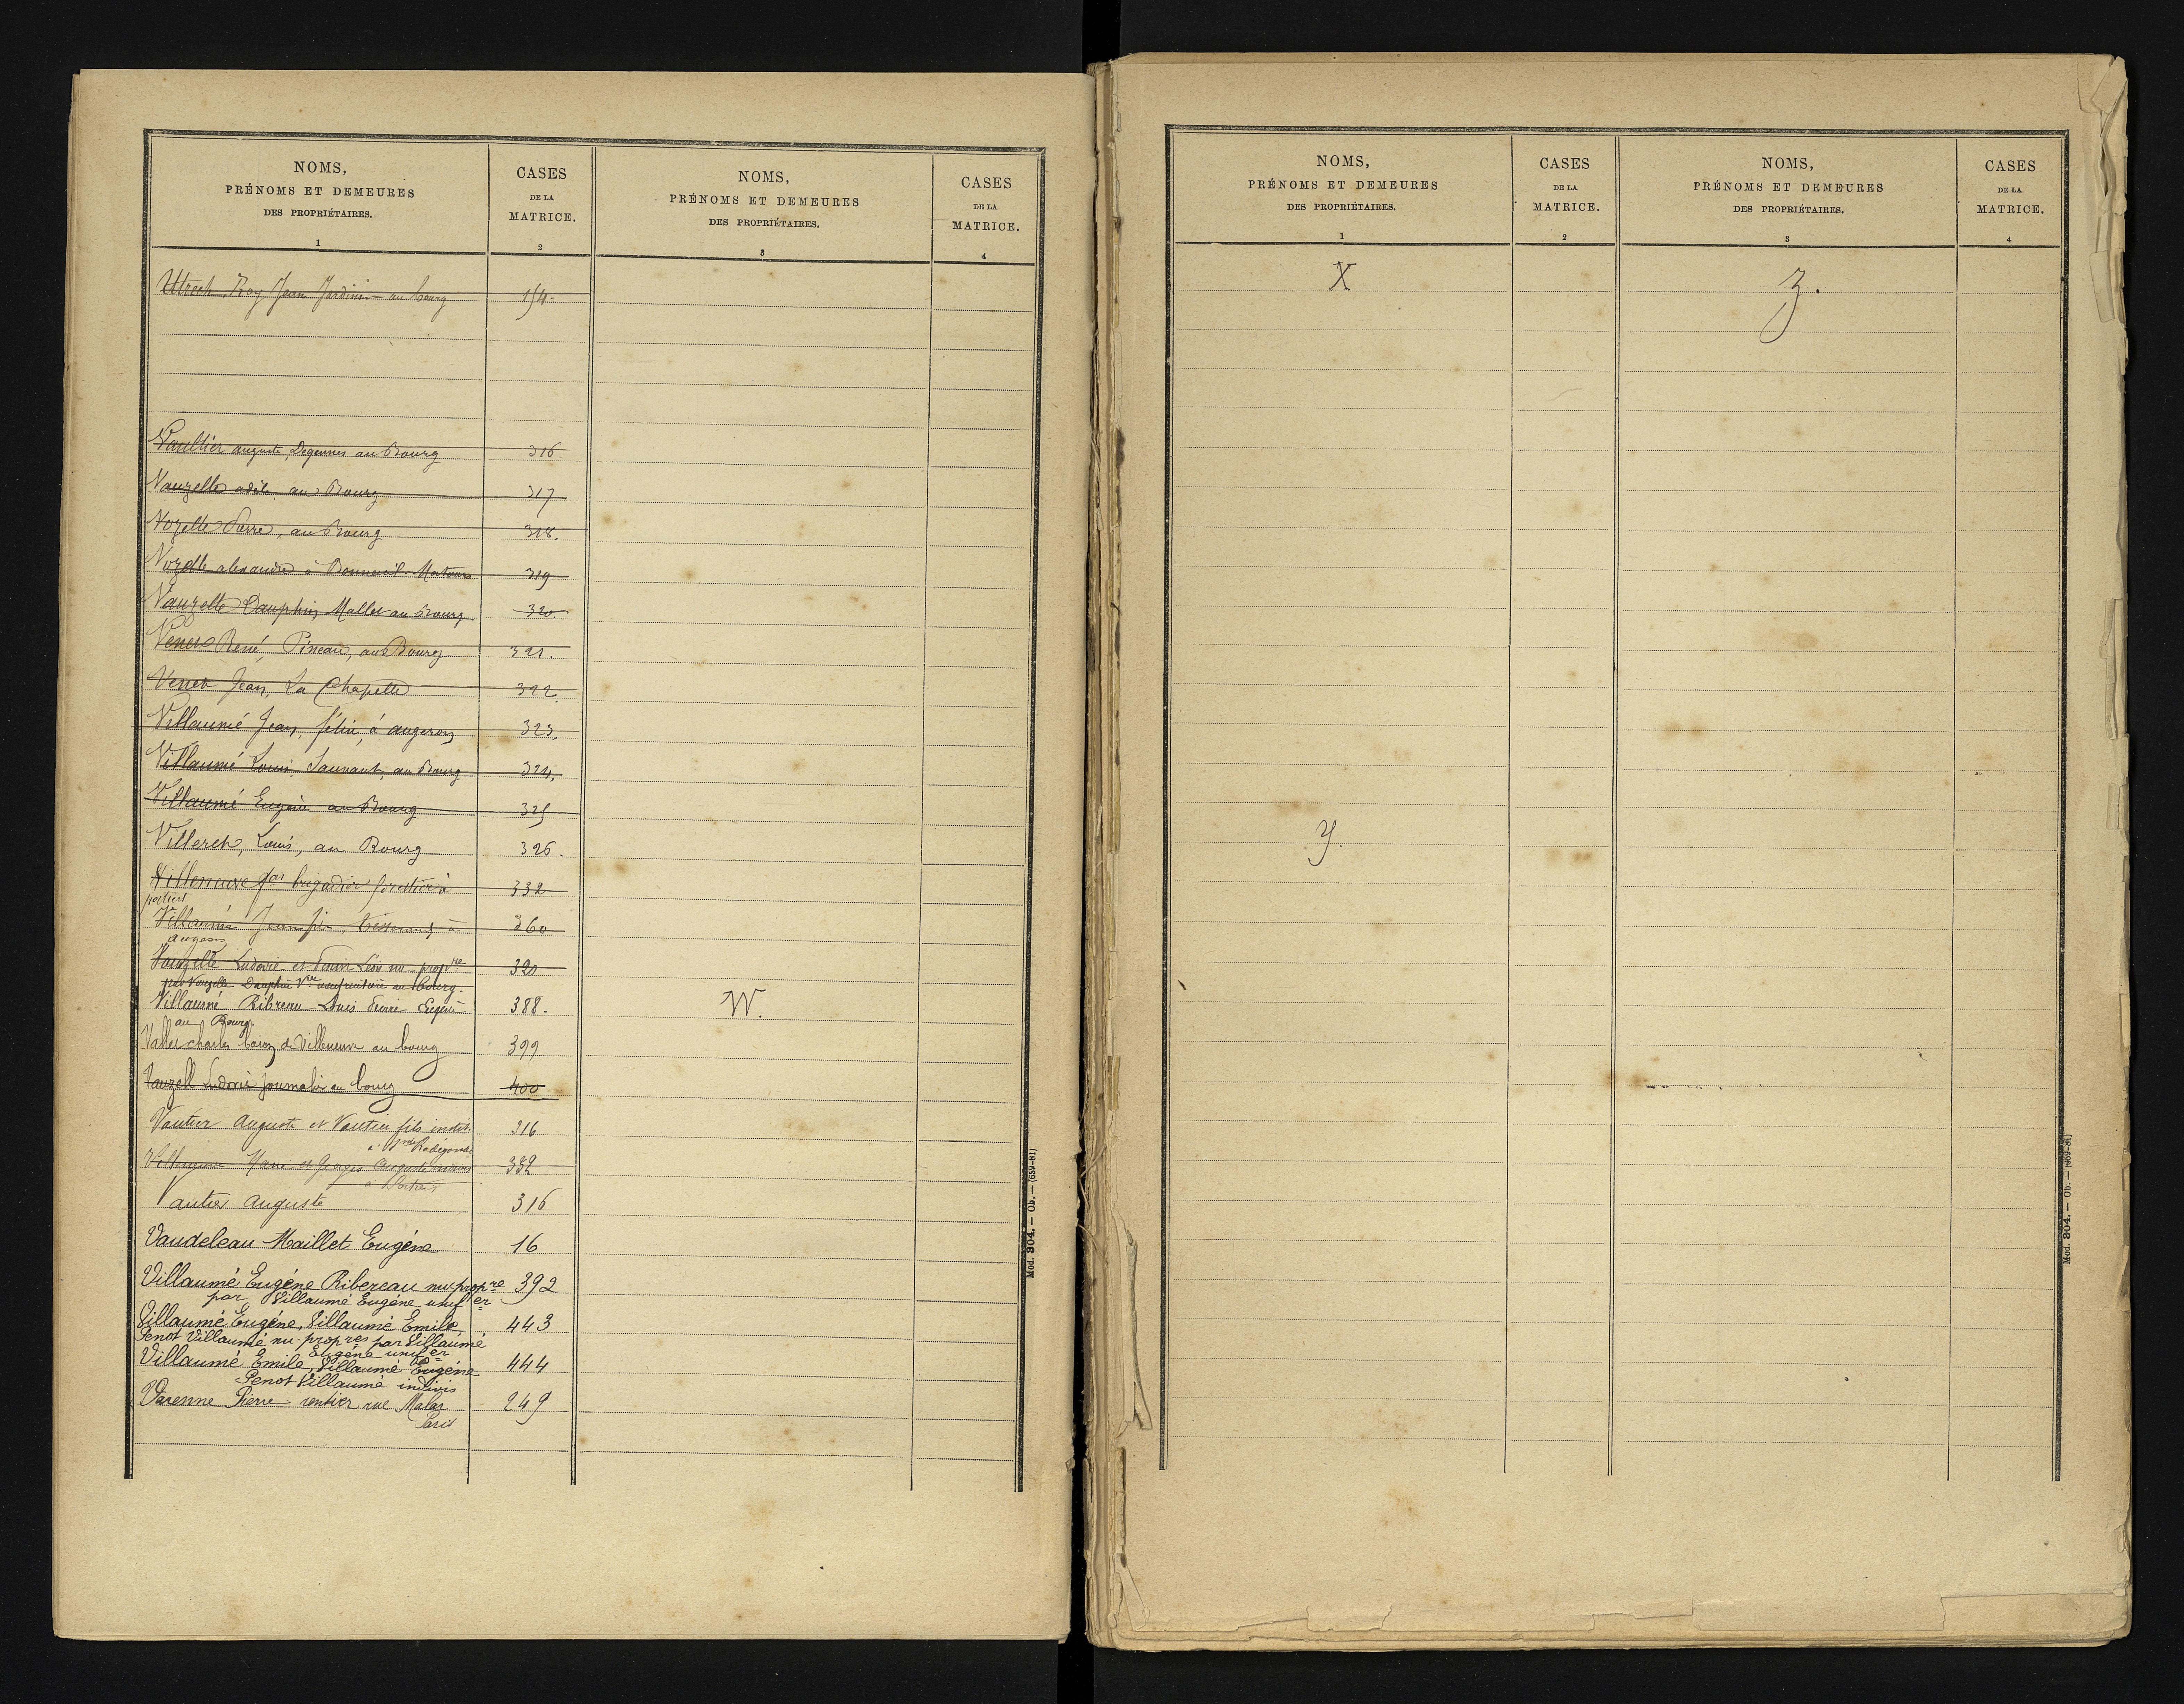 NOMS,
PRÉNOMS ET DEMEURES
DES PROPRIÉTAIRES.
1
CASES
DE LA
MATRICE.
2
NOMS,
PRÉNOMS ET DEMEURES
DES PROPRIÉTAIRES.
3
CASES
DE LA
MATRICE.
4
Utrech, Roy Jean Jardinier au bourg 154.
Vaultier auguste, Degennes au Bourg 316
Vauzelle adèle au Bourg 317
Vozelle Pierre, au Bourg 318.
Vozelle alexandre à Bonneuil-Matours 319
Vauzelle Dauphin, Mallet au Bourg 320.
Venet René, Pineau, au Bourg 321.
Venet Jean, La Chapelle 322.
Villaumé Jean, félix, à augeron 323.
Villaumé Louis Sauvant, au Bourg 324.
Villaumé Eugène au Bourg 325
Villeret, Louis, au Bourg 326.
Villeneuve brigadier forestier à 332
poitiers
Villaumé Jean fix, tisserand, à 360
augeron
Vauzelle Ludovic et Firmin Léon nu-propre 320
par Vauzelle Dauphin Vve usufruitière au bourg.
Villaumé Ribreau Louis Pierre Eugène 388.
au Bourg.
W.
Vallet charles baron de Villeneuve au bourg 399
Vauzelle Ludovic journalier au bourg 400
Vautier Auguste et Vautier fils instit. 316
à Ste Radégonde
Villeneuve Marie et Georges Auguste indivis 332
à Poitiers
Vautier Auguste 316
Vaudeleau Maillet Eugène 16
Villaumé Eugène Ribereau nu-propre 392
par Villaumé Eugène usufer
Villaumé Eugène, Villaumé Emile 443
Penot Villaumé nu-propres par Villaumé
Eugène usufer
Villaumé Emile, Villaumé Eugène 444
Penot Villaumé indivis
Varenne Pierre rentier rue Malar 249
Paris
Mod. 304. — Ob. — (659-81)
NOMS,
PRÉNOMS ET DEMEURES
DES PROPRIÉTAIRES.
1
CASES
DE LA
MATRICE.
2
NOMS,
PRÉNOMS ET DEMEURES
DES PROPRIÉTAIRES.
3
CASES
DE LA
MATRICE.
4
X
Y.
Z.
Mod. 304. — Ob. — (659-81)